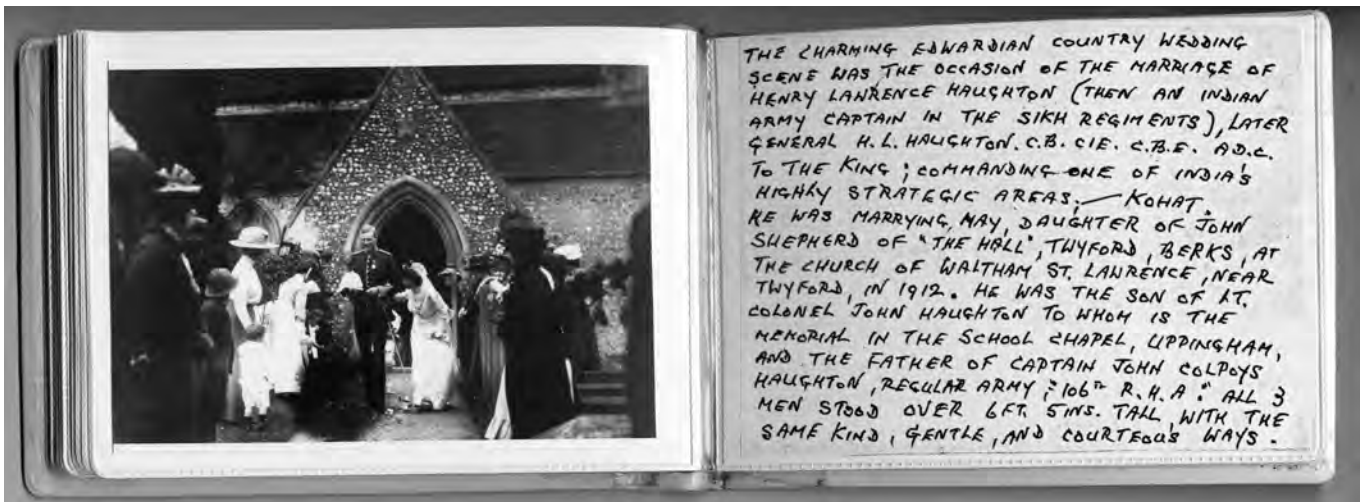 THE CHARMING EDWARDIAN COUNTRY WEDDING
SCENE WAS THE OCCASION OF THE MARRIAGE OF
HENRY LAWRENCE HAUGHTON (THEN AN INDIAN
ARMY CAPTAIN IN THE SIKH REGIMENTS), LATER
GENERAL H. L. HAUGHTON. C.B. CIE. C.B.E. A.D.C.
TO THE KING; COMMANDING ONE OF INDIA'S
HIGHLY STRATEGIC AREAS; — KOHAT.
HE WAS MARRYING MAY, DAUGHTER OF JOHN
SHEPHERD OF "THE HALL", TWYFORD, BERKS, AT
THE CHURCH OF WALTHAM ST. LAWRENCE, NEAR
TWYFORD, IN 1912. HE WAS THE SON OF LT.
COLONEL JOHN HAUGHTON TO WHOM IS THE
MEMORIAL IN THE SCHOOL CHAPEL, UPPINGHAM,
AND THE FATHER OF CAPTAIN JOHN COLPOYS
HAUGHTON, REGULAR ARMY; "106TH R.H.A." ALL 3
MEN STOOD OVER 6FT. 5INS. TALL, WITH THE
SAME KIND, GENTLE, AND COURTEOUS WAYS.